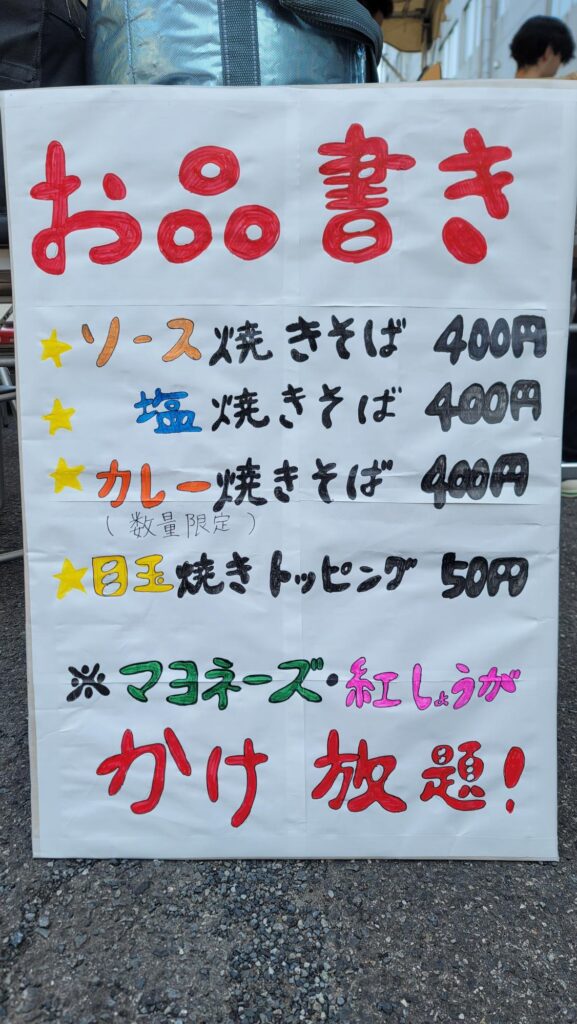 お品書き
★ソース焼きそば 400円
★塩焼きそば 400円
★カレー焼きそば 400円
(数量限定)
★目玉焼きトッピング 50円
※マヨネーズ・紅しょうが
かけ放題!